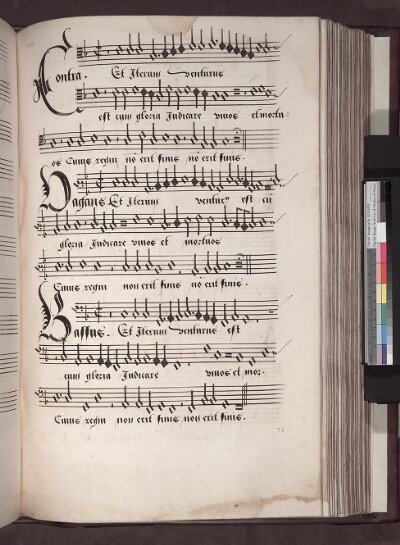 Contra. Et Iterum venturus
est cum gloria Iudicare vivos et mortu
os Cuius regni nō erit finis nō erit finis.
Vagans Et Iterum venturꝰ est cū
gloria Iudicare vivos et mortuos
Cuius regni non erit finis nō erit finis.
Bassus. Et Iterum venturus est
cum gloria Iudicare vivos et mor.
Cuius regni non erit finis non erit finis.